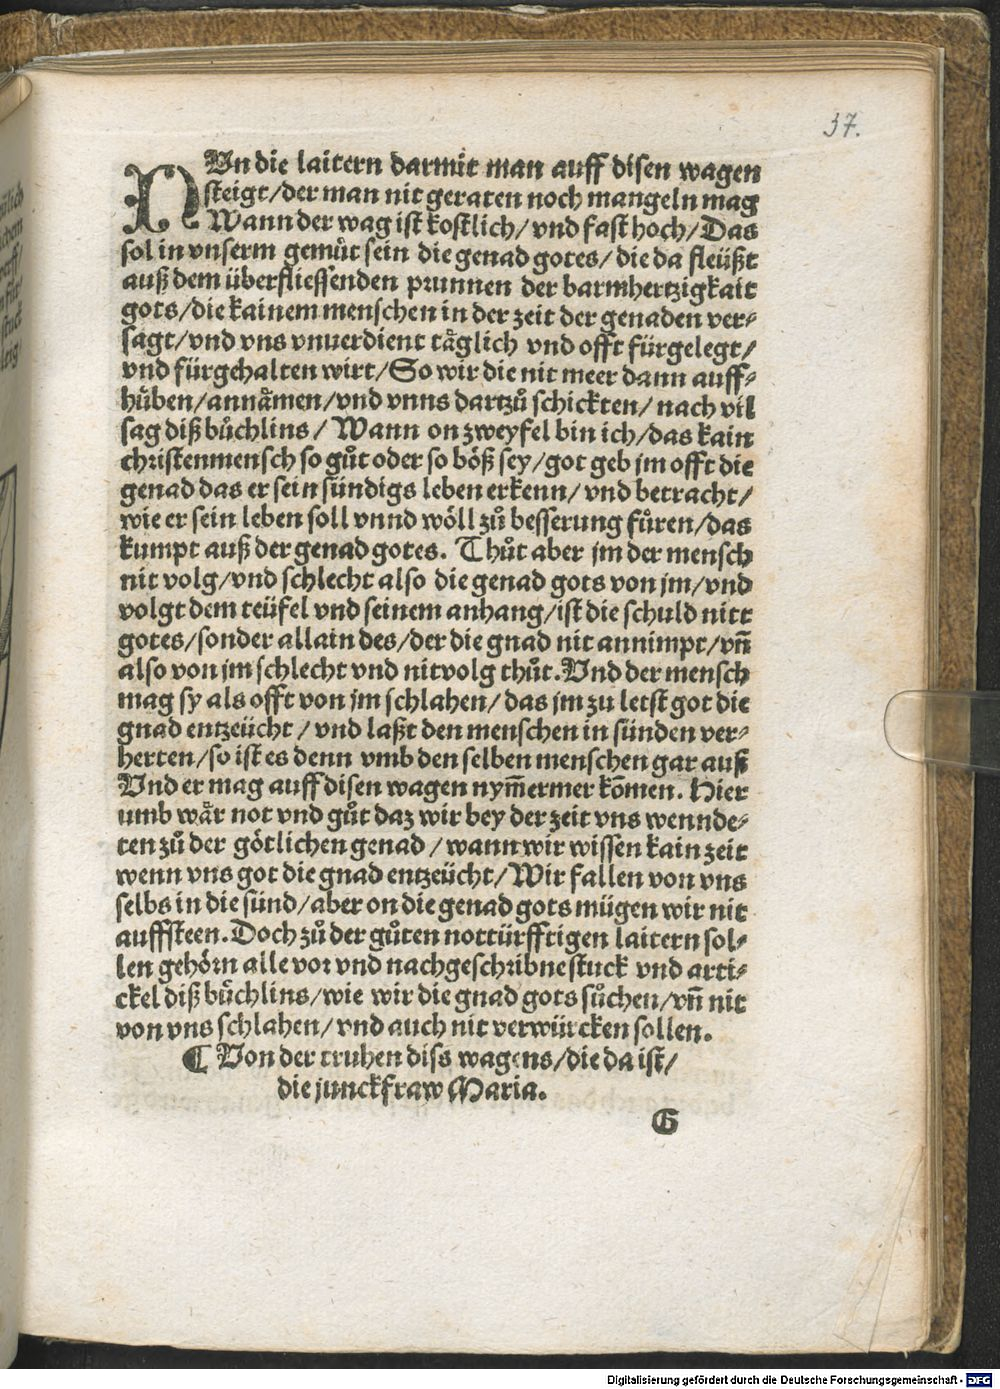 37.
NUn die laitern darmit man auff disen wagen
steigt/der man nit geraten noch mangeln mag
Wann der wag ist kostlich/ vnd fast hoch/ Das
sol in vnserm gemuͤt sein die genad gotes/ die da fleüßt
auß dem überfliessenden prunnen der barmhertzigkait
gots/die kainem menschen in der zeit der genaden ver⸗
sagt/vnd vns vnuerdient taͤglich vnd offt fürgelegt/
vnd fürgehalten wirt/ So wir die nit meer dann auff⸗
huͤben/annaͤmen/vnd vnns dartzuͦ schickten/ nach vil
sag diß buͤchlins/ Wann on zweyfel bin ich/das kain
christenmensch so guͦt oder so böß sey/got geb jm offt die
genad das er sein sündigs leben erkenn/ vnd betracht/
wie er sein leben soll vnnd wöll zuͦ besserung fuͤren/das
kumpt auß der genad gotes. Thuͦt aber jm der mensch
nit volg/vnd schlecht also die genad gots von jm/vnd
volgt dem teüfel vnd seinem anhang/ist die schuld nitt
gotes/sonder allain des/der die gnad nit annimpt/vñ
also von jm schlecht vnd nitvolg thuͦt. Vnd der mensch
mag sy als offt von jm schlahen/ das jm zu letst got die
gnad entzeücht / vnd laßt den menschen in sünden ver⸗
herten/so ist es denn vmb den selben menschen gar auß
Vnd er mag auff disen wagen nym̃ermer kõmen. Hier
umb waͤr not vnd guͦt daz wir bey der zeit vns wennde⸗
ten zuͦ der götlichen genad / wann wir wissen kain zeit
wenn vns got die gnad entzeücht/ Wir fallen von vns
selbs in die sünd/aber on die genad gots mügen wir nit
auffsteen. Doch zuͦ der guͦten nottürfftigen laitern sol⸗
len gehörn alle vor vnd nachgeschribne stuck vnd arti⸗
ckel diß buͤchlins/wie wir die gnad gots suͦchen/vñ nit
von vns schlahen/ vnd auch nit verwürcken sollen.
¶ Von der truhen diss wagens/die da ist/
die junckfraw Maria.
G
Digitalisierung gefördert durch die Deutsche Forschungsgemeinschaft - DFG